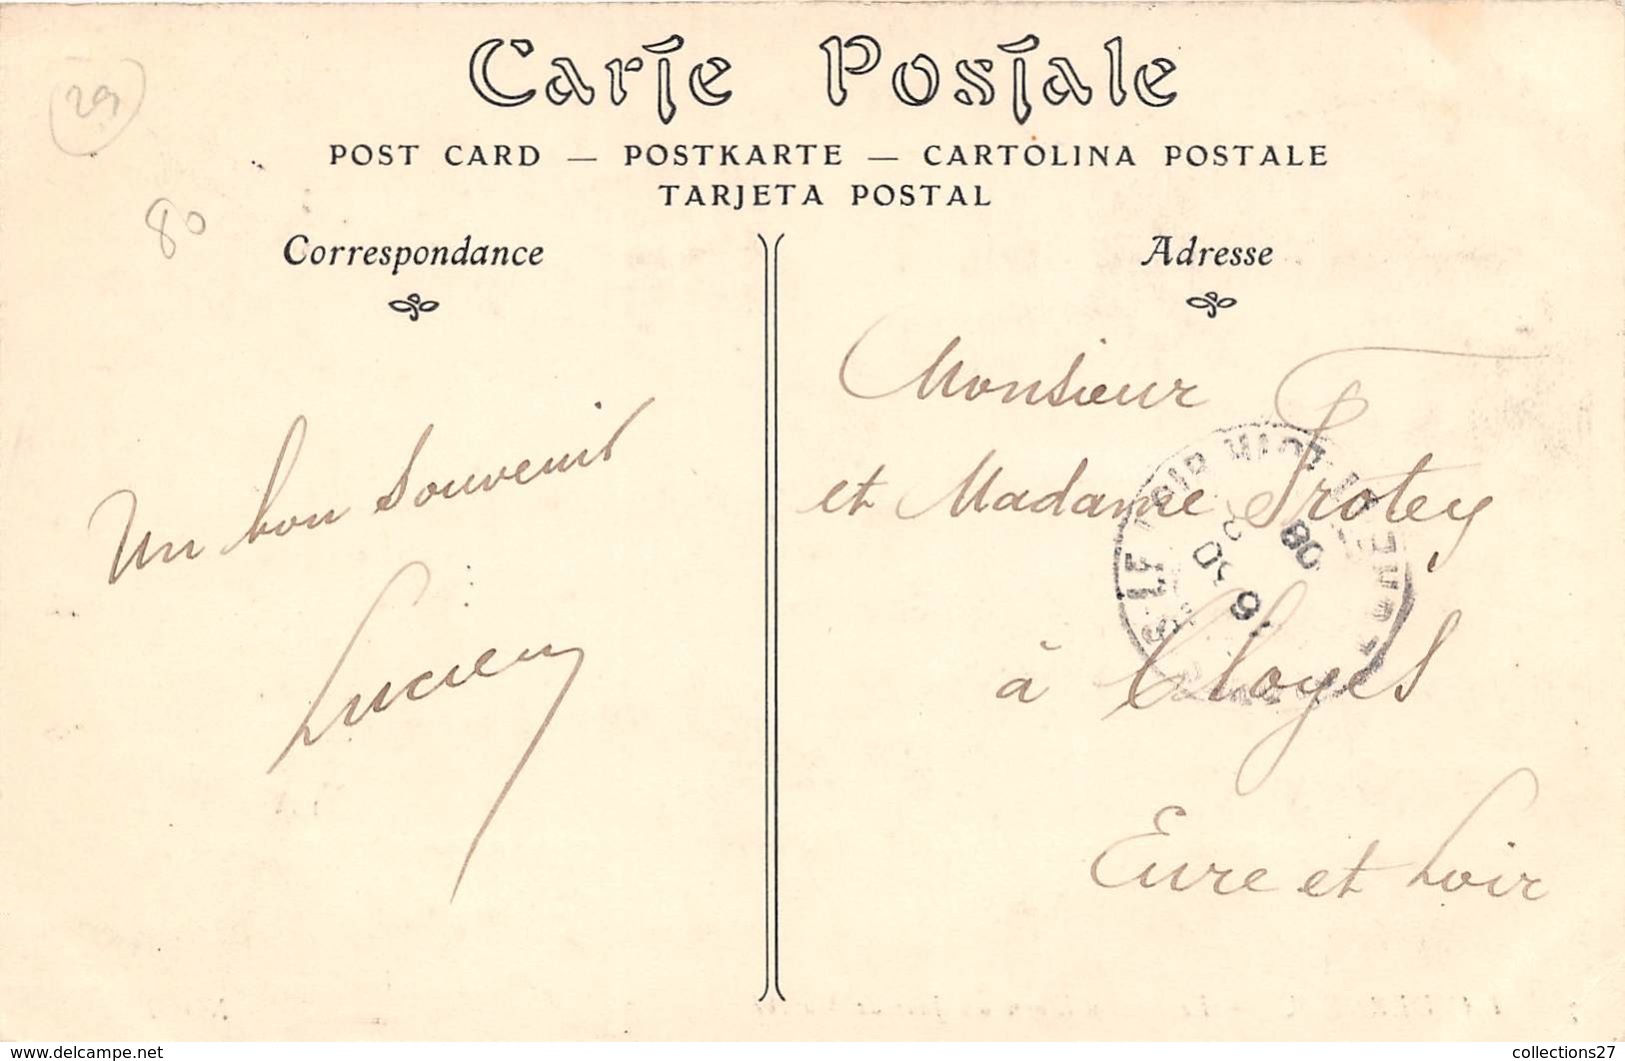 29
80
Carte Postale
POST CARD — POSTKARTE — CARTOLINA POSTALE
TARJETA POSTAL
Correspondance
Un bon souvenir
Lucien
Adresse
Monsieur
et Madame Frotey
à Cloyes
Eure et Loir
9
08
collections27